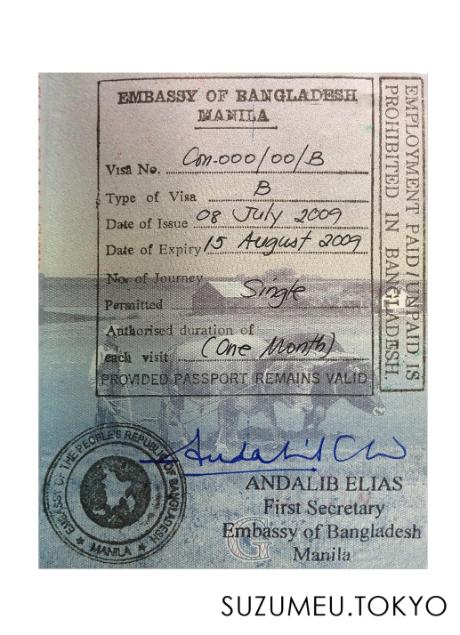 EMBASSY OF BANGLADESH
MANILA
Visa No. Con-000/00/B
Type of Visa B
Date of Issue 08 July 2009
Date of Expiry 15 August 2009
No. of Journey
Permitted Single
Authorised duration of
each visit (One Month)
PROVIDED PASSPORT REMAINS VALID
EMPLOYMENT PAID/UNPAID IS
PROHIBITED IN BANGLADESH
EMBASSY OF THE PEOPLE'S REPUBLIC OF BANGLADESH
★ MANILA ★
ANDALIB ELIAS
First Secretary
Embassy of Bangladesh
Manila
SUZUMEU.TOKYO